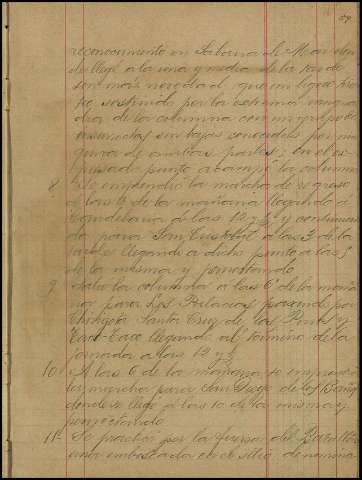 reconocimiento en Sabana del Mar don
de llegó a la una y media de la tarde
sin mas novedad que un ligero tiro
teo sostenido por la estrema vangua
dia de la columna con un grupo de
enemigos sin bajas conocidas por nin
guna de ambas partes; en el es
presado punto acampó la columna
8 Se emprendió la marcha de regreso
a las 6 de la mañana llegando á
Candelaria a las 12 y ½ y continuan
do para San Cristobal a las 3 de la
tarde llegando a dicho punto a las 5
de la misma y pernoctando
9 Salió la columna a las 6 de la maña
na para Los Palacios pasando por
Chirigota Santa Cruz de los Pinos y
Taco-Taco llegando al termino de la
jornada a las 12 y ½
10 A las 6 de la mañana se empren
dio marcha para San Diego de los Baños
donde se llegó a las 10 de la misma y
pernoctando
11 Se practicó por la fuerza del Batallon
una emboscada en el sitio denomina